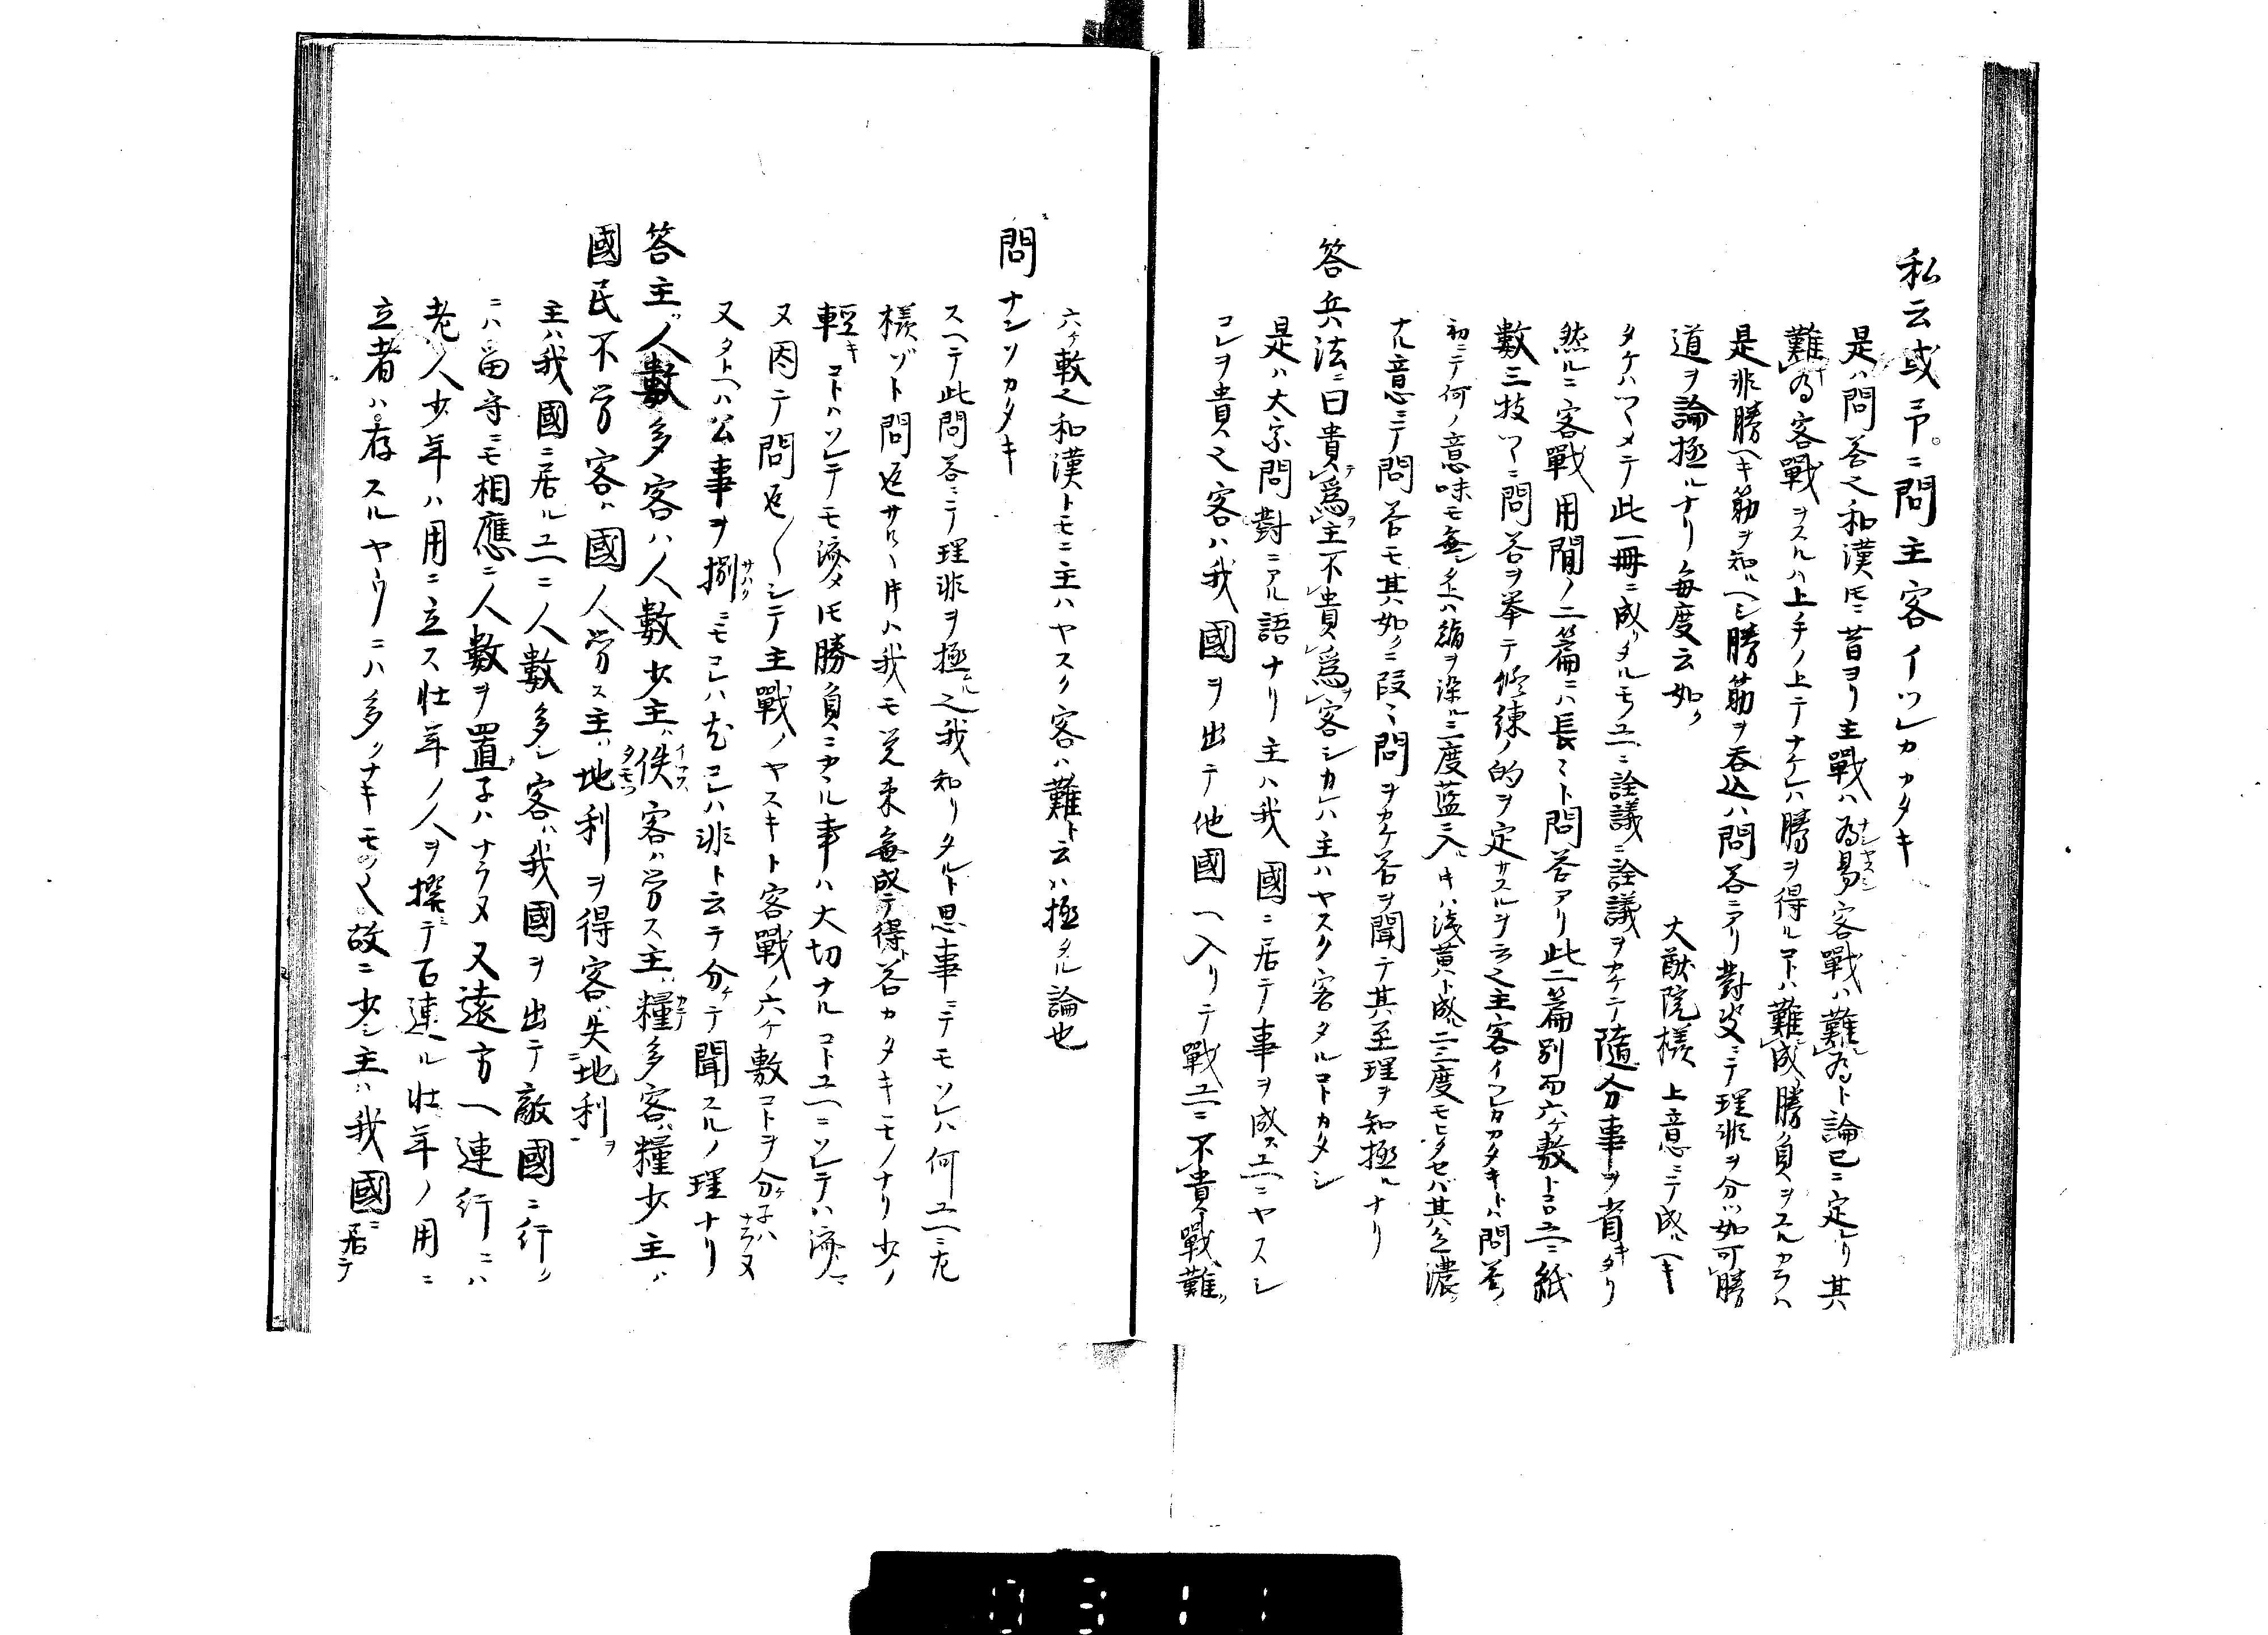 私云或弔ニ問主客イツレカカタキ
是ハ問答之和漢ﾄﾓニ昔ヨリ主戰ハ為易客戰ハ難為ト論已ニ定レリ其
難為客戰ヲスルハ上手ノ上テナケレハ勝ヲ得ルコトハ難成勝負ヲスルカラハ
是非勝ヘキ筋ヲ知ルヘシ勝筋ヲ吞込ハ問答ニアリ對炎ニテ理非ヲ分ハ如可勝
道ヲ論極ルナリ每度云如ク 大猷院樣上意ニテ成ルヘキ
タケハツヽメテ此一冊ニ成リタルモノユヘニ詮議ニ詮議ヲカケテ隨分事ヲ省キタリ
然ルニ客戰用間ノ二篇ニハ長々ト問答アリ此二篇別而六ケ敷トコロユヘニ紙
數三枚ツヽニ問答ヲ举テ修練ノ的ヲ定サスルヲ云之主客イツレカカタキトハ問答ノ
初ニテ何ノ意味モ無シ ハ絹ヲ染ル三度藍ニ入ルキハ浅黄ト成ル二三度モヒタセバ其色濃ク
ナル意ニテ問答モ其如クニ段々問ヲカケ答ヲ聞テ其至理ヲ知極ルナリ
答兵法ニ曰貴テ爲主不貴爲客シカレハ主ハヤスク客タルコトカタシ
是ハ大宗問對ニアル語ナリ主ハ我國ニ居テ事ヲ成スユヘニヤスシ
コレヲ貴之客ハ我國ヲ出テ他國ヘ入リテ戰ユヘニ不貴戰難ク
六ケ敷之和漢トモニ主ハヤスク客ハ難ト云ハ極タル論也
問ナンソカタキ
スヘテ此問答ニテ理非ヲ極ル之我知リタルト思事ニテモソレハ何ユヘニ左
樣ゾト問返サルヽ片ハ我モ覚束無成テ得ト答カタキモノナリ少ノ
輕キコトハソレテモ濟メﾄﾓ勝負ニカヽル事ハ大切ナルコトユヘニソレテハ濟マヌ
又因テ問返〳〵シテ主戰ノヤスキト客戰ノ六ケ敷コトヲ分ケ子ハナラヌ
又タトヘハ公事ヲ捌ニモコレハ尤コレハ非ト云テ分ケテ聞スルノ理ナリ
答主ハ人數多客ハ人數少主ハ佚客ハ労ス主ハ糧多客ハ糧少主ハ
國民不労客ハ國人労ス主ハ地利ヲ得客ハ失地利ヲ
主ハ我國ニ居ルユヘニ人數多シ客ハ我國ヲ出テ敵國ニ行ク
ニハ留守ニモ相應ニ人數ヲ置子ハナラヌ又遠方ヘ連行ニハ
老人少年ハ用ニ立ス壮年ノ人ヲ撰ミテ召連ル壮年ノ用ニ
立者ハ存スルヤウニハ多クナキモノ之故ニ少シ主ハ我國ニ居テ